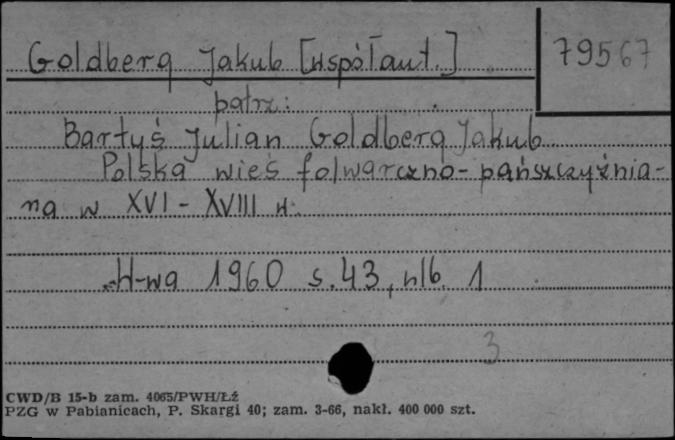 Goldberg Jakub [współaut.]
79567
patrz:
Bartyś Julian Goldberg Jakub
Polska wieś folwarczno-pańszczyźnia-
na w XVI - XVIII w.
W-wa 1960 s. 43, nlb. 1
3
CWD/B 15-b zam. 4065/PWH/Łź
PZG w Pabianicach, P. Skargi 40; zam. 3-66, nakł. 400 000 szt.